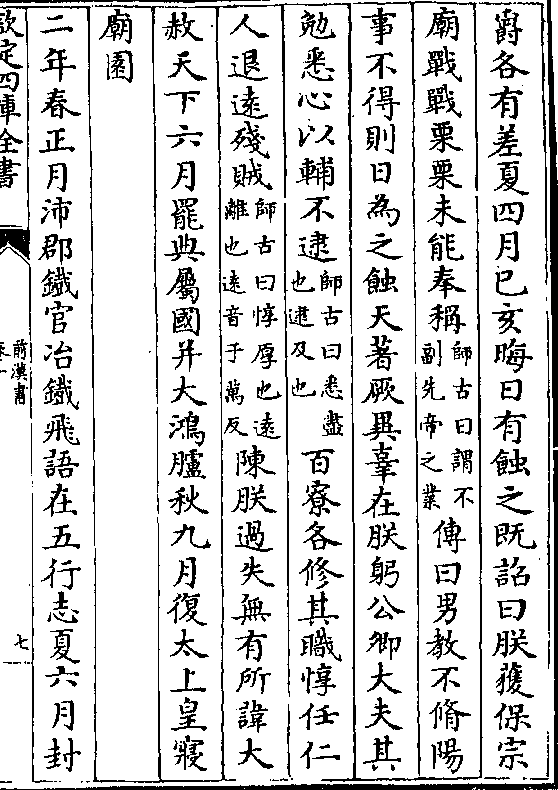 爵各有差夏四月己亥晦日有蝕之既詔曰朕獲保宗
廟戰戰栗栗未能奉稱師古曰謂不副先帝之業傳曰男教不脩陽
事不得則日為之蝕天著厥異辜在朕躬公卿大夫其
勉悉心以輔不逮師古曰悉盡也逮及也百寮各修其職惇任仁
人退遠殘賊師古曰惇厚也遠離也遠音于萬反陳朕過失無有所諱大
赦天下六月罷典屬國并大鴻臚秋九月復太上皇寢
廟園
二年春正月沛郡鐵官冶鐵飛語在五行志夏六月封
欽定四庫全書
前漢書
七